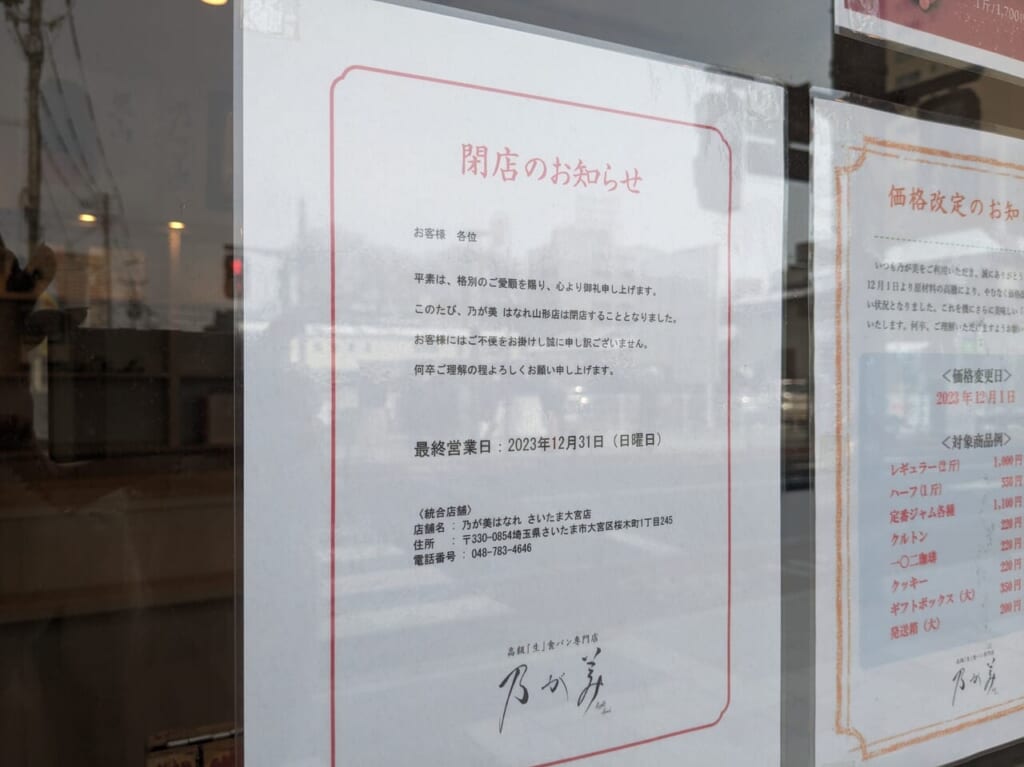 閉店のお知らせ
お客様　各位
平素は、格別のご愛願を賜り、心より御礼申し上げます。
このたび、乃が美 はなれ山形店は閉店することとなりました。
お客様にはご不便をお掛けし誠に申し訳ございません。
何卒ご理解の程よろしくお願い申し上げます。
最終営業日：2023年12月31日（日曜日）
〈統合店舗〉
店舗名 ： 乃が美はなれ さいたま大宮店
住所　 ： 〒330-0854埼玉県さいたま市大宮区桜木町1丁目245
電話番号 ： 048-783-4646
高級「生」食パン専門店
乃が美
1斤/1,700
価格改定のお知
いつも乃が美をご利用いただき、誠にありがとう
12月1日より原材料の高騰により、やむなく価格
い状況となりました。これを機にさらに美味しい
いたします。何卒、ご理解いただきますようお願い
＜価格変更日＞
2023年12月1日
＜対象商品例＞
レギュラー(2斤) 1,000円
ハーフ(1斤) 550円
定番ジャム各種 1,100円
クルトン 220円
一〇二珈琲 220円
クッキー 220円
ギフトボックス（大） 350円
発送箱（大） 200円
高級「生」食パン専門店
乃が美